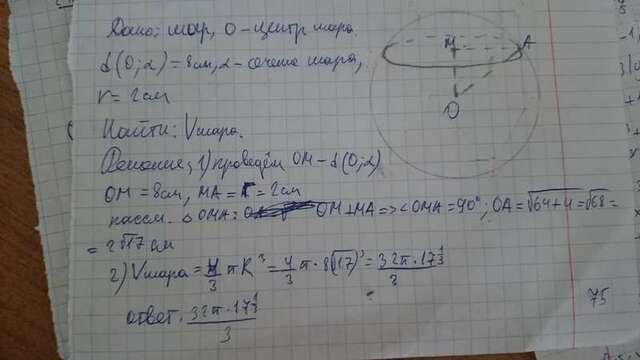 Дано: шар, O – центр шара.
M A
d(O;α) = 8см, α – сечение шара,
r = 2см
O
Найти: Vшара.
Решение: 1) проведём OM – d(O;α)
OM = 8см, MA = r = 2см
рассм. △OMA: OM⊥MA => ∠OMA = 90°; OA = √64+4 = √68 =
= 2√17 см
2) Vшара = 4/3 πR³ = 4/3 π · 8√17³ = 32π·17
3
ответ: 32π·17
3
75